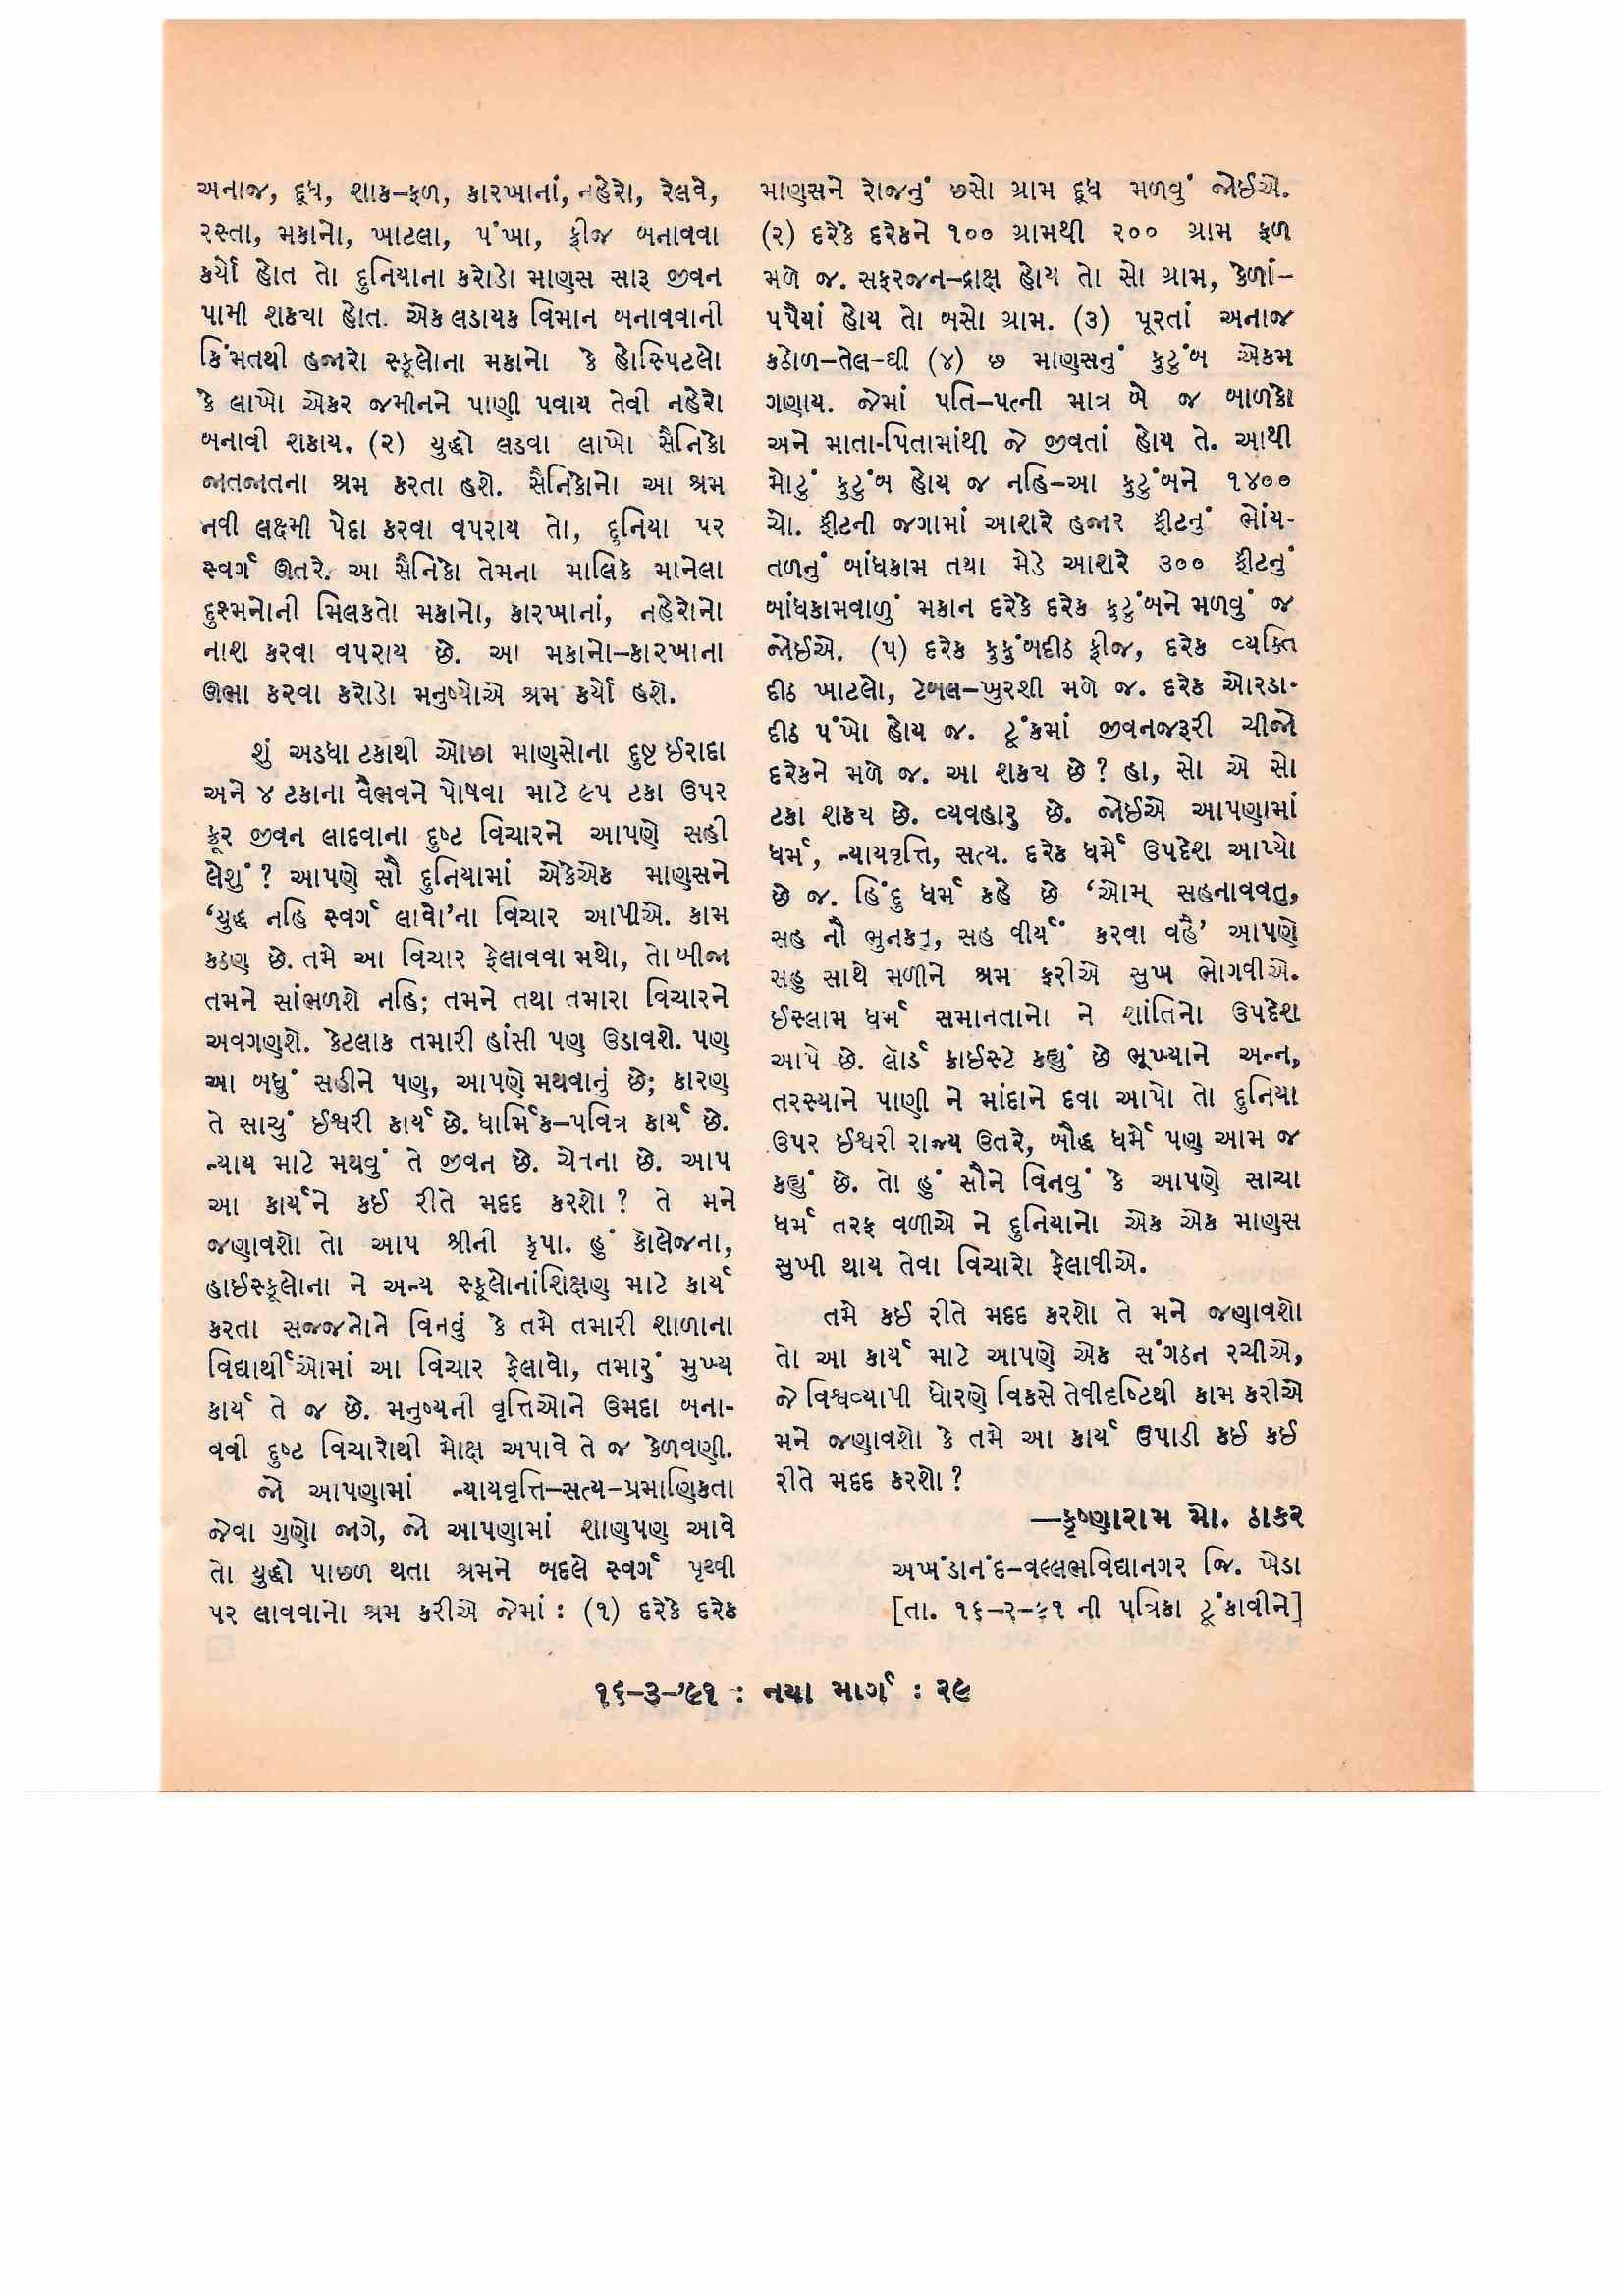 અનાજ, દૂધ, શાક-ફળ, કારખાનાં, નહેરો, રેલવે,
રસ્તા, મકાનો, ખાટલા, પંખા, ફ્રીજ બનાવવા
કર્યો હોત તો દુનિયાના કરોડો માણસ સારૂ જીવન
પામી શક્યા હોત. એક લડાયક વિમાન બનાવવાની
કિંમતથી હજારો સ્કૂલોના મકાનો કે હોસ્પિટલો
કે લાખો એકર જમીનને પાણી પવાય તેવી નહેરો
બનાવી શકાય. (૨) યુદ્ધો લડવા લાખો સૈનિકો
જાતજાતના શ્રમ કરતા હશે. સૈનિકોનો આ શ્રમ
નવી લક્ષ્મી પેદા કરવા વપરાય તો, દુનિયા પર
સ્વર્ગ ઊતરે. આ સૈનિકો તેમના માલિકે માનેલા
દુશ્મનોની મિલકતો મકાનો, કારખાનાં, નહેરોનો
નાશ કરવા વપરાય છે. આ મકાનો-કારખાના
ઊભા કરવા કરોડો મનુષ્યોએ શ્રમ કર્યો હશે.
શું અડધા ટકાથી ઓછા માણસોના દુષ્ટ ઈરાદા
અને ૪ ટકાના વૈભવને પોષવા માટે ૯૫ ટકા ઉપર
ક્રૂર જીવન લાદવાના દુષ્ટ વિચારને આપણે સહી
લેશું ? આપણે સૌ દુનિયામાં એકેએક માણસને
‘યુદ્ધ નહિ સ્વર્ગ લાવો’ના વિચાર આપીએ. કામ
કઠણ છે. તમે આ વિચાર ફેલાવવા મથો, તો બીજા
તમને સાંભળશે નહિ; તમને તથા તમારા વિચારને
અવગણશે. કેટલાક તમારી હાંસી પણ ઉડાવશે. પણ
આ બધું સહીને પણ, આપણે મથવાનું છે; કારણ
તે સાચું ઈશ્વરી કાર્ય છે. ધાર્મિક-પવિત્ર કાર્ય છે.
ન્યાય માટે મથવું તે જીવન છે. ચેતના છે. આપ
આ કાર્યને કઈ રીતે મદદ કરશો ? તે મને
જણાવશો તો આપ શ્રીની કૃપા. હું કૉલેજના,
હાઈસ્કૂલોના ને અન્ય સ્કૂલોનાંશિક્ષણ માટે કાર્ય
કરતા સજ્જનોને વિનવું કે તમે તમારી શાળાના
વિદ્યાર્થીઓમાં આ વિચાર ફેલાવો, તમારું મુખ્ય
કાર્ય તે જ છે. મનુષ્યની વૃત્તિઓને ઉમદા બના-
વવી દુષ્ટ વિચારોથી મોક્ષ અપાવે તે જ કેળવણી.
જો આપણામાં ન્યાયવૃત્તિ-સત્ય-પ્રમાણિકતા
જેવા ગુણો જાગે, જો આપણામાં શાણપણ આવે
તો યુદ્ધો પાછળ થતા શ્રમને બદલે સ્વર્ગ પૃથ્વી
પર લાવવાનો શ્રમ કરીએ જેમાં : (૧) દરેકે દરેક
માણસને રોજનું છસો ગ્રામ દૂધ મળવું જોઈએ.
(૨) દરેકે દરેકને ૧૦૦ ગ્રામથી ૨૦૦ ગ્રામ ફળ
મળે જ. સફરજન-દ્રાક્ષ હોય તો સો ગ્રામ, કેળાં-
પપૈયાં હોય તો બસો ગ્રામ. (૩) પૂરતાં અનાજ
કઠોળ-તેલ-ઘી (૪) છ માણસનું કુટુંબ એકમ
ગણાય. જેમાં પતિ-પત્ની માત્ર બે જ બાળકો
અને માતા-પિતામાંથી જે જીવતાં હોય તે. આથી
મોટું કુટુંબ હોય જ નહિ-આ કુટુંબને ૧૪૦૦
ચો. ફીટની જગામાં આશરે હજાર ફીટનું ભોંય-
તળનું બાંધકામ તથા મેડે આશરે ૩૦૦ ફીટનું
બાંધકામવાળું મકાન દરેકે દરેક કુટુંબને મળવું જ
જોઈએ. (૫) દરેક કુકુંબદીઠ ફ્રીજ, દરેક વ્યક્તિ
દીઠ ખાટલો, ટેબલ-ખુરશી મળે જ. દરેક ઓરડા-
દીઠ પંખો હોય જ. ટૂંકમાં જીવનજરૂરી ચીજો
દરેકને મળે જ. આ શક્ય છે ? હા, સો એ સો
ટકા શક્ય છે. વ્યવહારુ છે. જોઈએ આપણામાં
ધર્મ, ન્યાયવૃત્તિ, સત્ય. દરેક ધર્મે ઉપદેશ આપ્યો
છે જ. હિંદુ ધર્મ કહે છે ‘ઓમ્ સહનાવવતુ,
સહ નૌ ભુનકતુ, સહ વીર્યં કરવા વહૈ’ આપણે
સહુ સાથે મળીને શ્રમ કરીએ સુખ ભોગવીએ.
ઈસ્લામ ધર્મ સમાનતાનો ને શાંતિનો ઉપદેશ
આપે છે. લૉર્ડ ક્રાઈસ્ટે કહ્યું છે ભૂખ્યાને અન્ન,
તરસ્યાને પાણી ને માંદાને દવા આપો તો દુનિયા
ઉપર ઈશ્વરી રાજ્ય ઉતરે, બૌદ્ધ ધર્મે પણ આમ જ
કહ્યું છે. તો હું સૌને વિનવું કે આપણે સાચા
ધર્મ તરફ વળીએ ને દુનિયાનો એક એક માણસ
સુખી થાય તેવા વિચારો ફેલાવીએ.
તમે કઈ રીતે મદદ કરશો તે મને જણાવશો
તો આ કાર્ય માટે આપણે એક સંગઠન રચીએ,
જે વિશ્વવ્યાપી ધોરણે વિકસે તેવીદૃષ્ટિથી કામ કરીએ
મને જણાવશો કે તમે આ કાર્ય ઉપાડી કઈ કઈ
રીતે મદદ કરશો ?
—કૃષ્ણારામ મો. ઠાકર
અખંડાનંદ-વલ્લભવિદ્યાનગર જિ. ખેડા
[તા. ૧૬-૨-૯૧ ની પત્રિકા ટૂંકાવીને]
૧૬-૩-’૯૧ : નયા માર્ગ : ૨૯